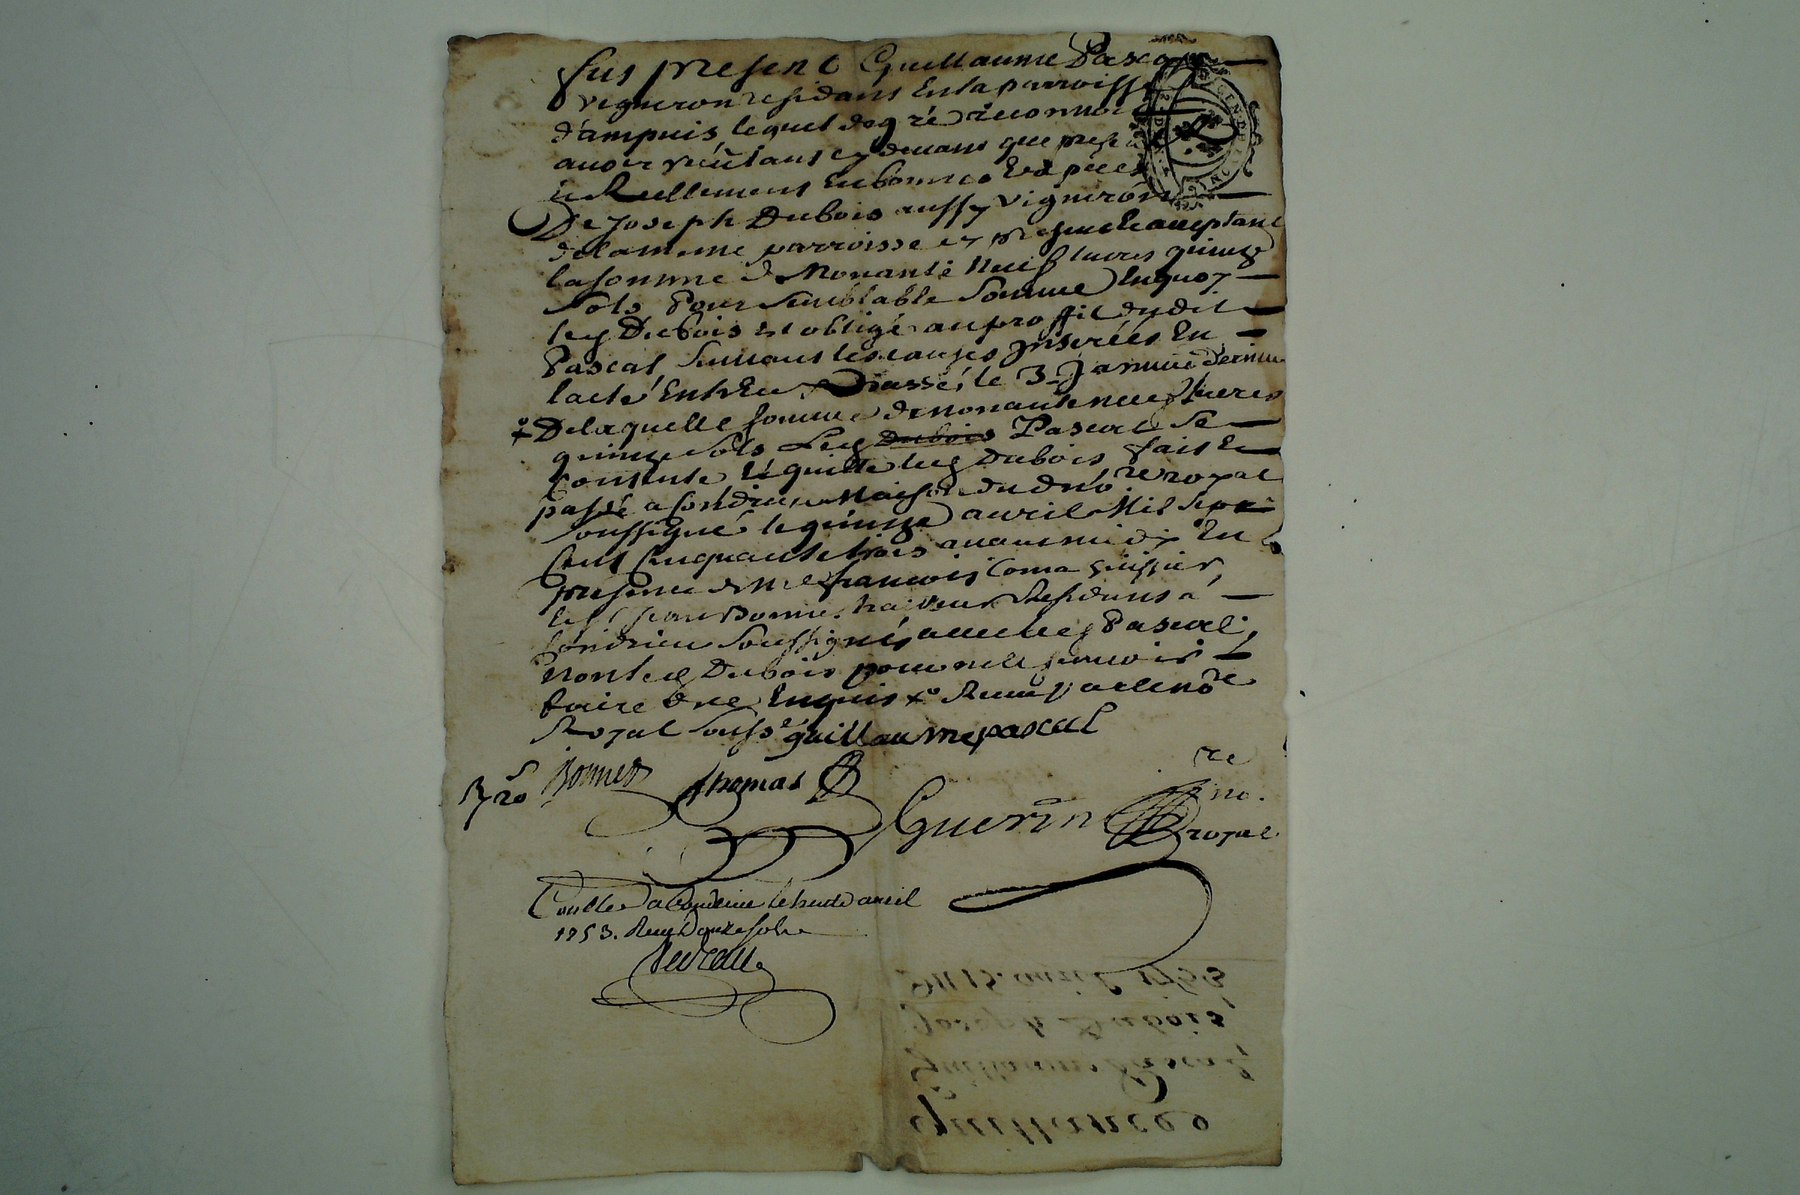 fus present Guillaume Pascal
vigneron residant en la parroisse
d'ampuis lequel de gré reconnoit
avoir cy devant que presen
reellement en bonnes Espèces
De Joseph Dubois aussy vigneron
de la meme parroisse cy present et acceptant
la somme de Nonante Neuf livres quinze
sols Pour semblable somme En quoy
led Dubois est obligé au proffit dudit
Pascal, suivant les causes Inserées En
l'acte Entr'eux passé, le 3 Janvier dernier
De laquelle somme de nonante neuf livres
quinze sols Led Dubois Pascal se
contente Et quitte led Dubois fait et
passé a Condrieu Maison du d nore royal
soussigné le quinze avril Mil sept
Cent Cinquante trois avant midy En
presence de Me francois huissier
et sr Jean Bonnet Residents a
Condrieu soussignés avec led Pascal,
Non led Dubois pour ne le sçavoir
faire de ce Enquis Reçu par le nore
Royal soussé guillaume pascal
Bonnet Thomas
Guerin nore
royal
Conllé a Condrieu le trente avril
1753. Reçu douze sols
Du 15. avril 1753
Joseph Dubois
Guillaume Pascal
quittance